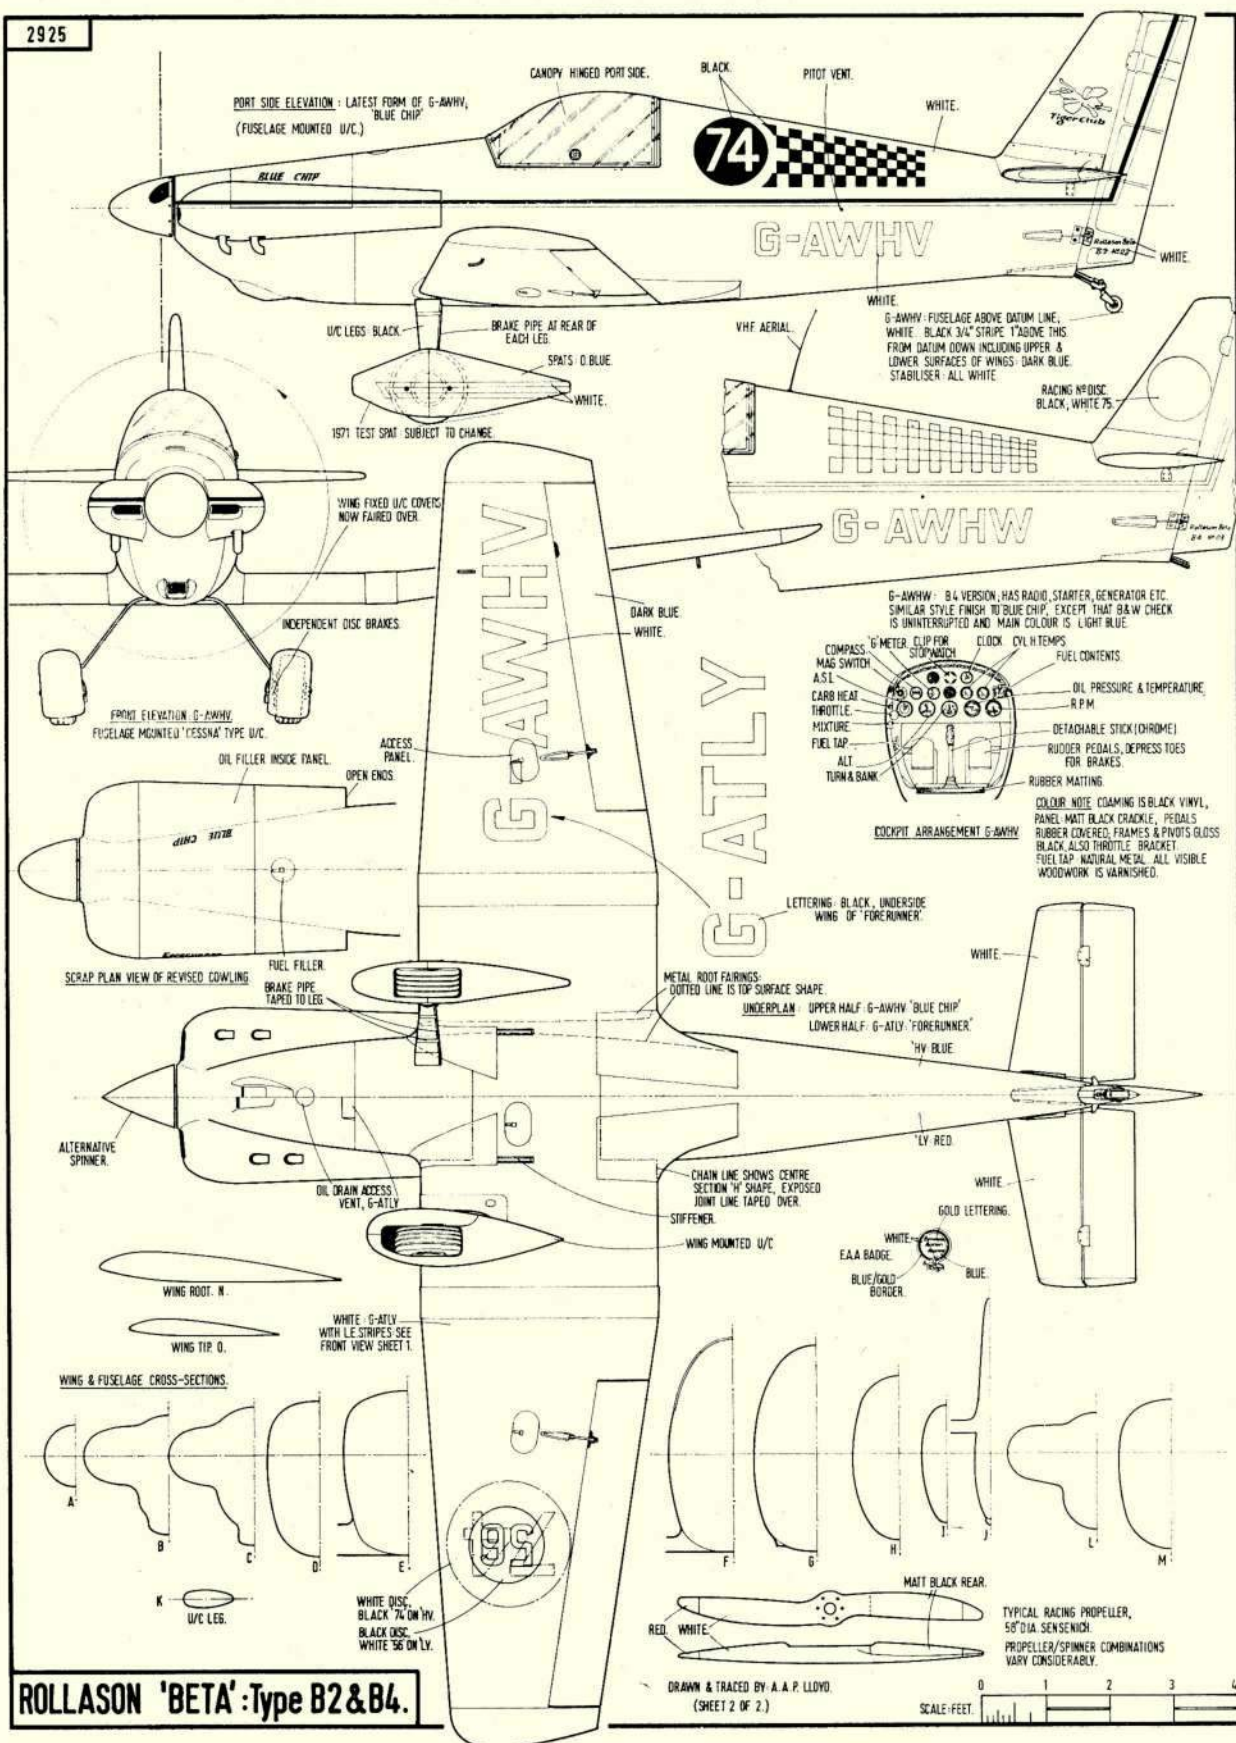 2925
PORT SIDE ELEVATION : LATEST FORM OF G-AWHV,
'BLUE CHIP'
(FUSELAGE MOUNTED U/C.)
CANOPY HINGED PORT SIDE.
BLACK.
PITOT VENT.
WHITE.
Tiger Club
74
BLUE CHIP
G-AWHV
Rollason Beta
WHITE.
WHITE.
U/C LEGS: BLACK.
BRAKE PIPE AT REAR OF
EACH LEG.
SPATS: D.BLUE.
WHITE.
1971 TEST SPAT: SUBJECT TO CHANGE.
V.H.F. AERIAL.
G-AWHV: FUSELAGE ABOVE DATUM LINE,
WHITE. BLACK 3/4" STRIPE 1" ABOVE THIS.
FROM DATUM DOWN INCLUDING UPPER &
LOWER SURFACES OF WINGS: DARK BLUE.
STABILISER: ALL WHITE
RACING Nº DISC.
BLACK; WHITE 75.
G-AWHW
Rollason Beta
WING FIXED U/C COVERS
NOW FAIRED OVER.
INDEPENDENT DISC BRAKES.
FRONT ELEVATION. G-AWHV.
FUSELAGE MOUNTED 'CESSNA' TYPE U/C.
G-AWHV
DARK BLUE.
WHITE.
G-AWHW: B4 VERSION, HAS RADIO, STARTER, GENERATOR ETC.
SIMILAR STYLE FINISH TO BLUE CHIP, EXCEPT THAT B&W CHECK
IS UNINTERRUPTED AND MAIN COLOUR IS LIGHT BLUE.
COMPASS.
'G' METER.
CLIP FOR
STOPWATCH
CLOCK
CYL H.TEMPS
FUEL CONTENTS.
MAG SWITCH
A.S.I.
CARB HEAT
THROTTLE.
MIXTURE.
FUEL TAP
ALT
TURN & BANK
OIL PRESSURE & TEMPERATURE
R.P.M
DETACHABLE STICK (CHROME)
RUDDER PEDALS, DEPRESS TOES
FOR BRAKES.
RUBBER MATTING.
COCKPIT ARRANGEMENT G-AWHV
COLOUR NOTE COAMING IS BLACK VINYL,
PANEL: MATT BLACK CRACKLE, PEDALS
RUBBER COVERED; FRAMES & PIVOTS GLOSS
BLACK, ALSO THROTTLE BRACKET.
FUEL TAP: NATURAL METAL. ALL VISIBLE
WOODWORK IS VARNISHED.
ACCESS
PANEL.
G-ATLY
LETTERING: BLACK, UNDERSIDE
WING OF 'FORERUNNER'.
OIL FILLER INSIDE PANEL.
OPEN ENDS.
BLUE CHIP
SCRAP PLAN VIEW OF REVISED COWLING.
FUEL FILLER.
BRAKE PIPE
TAPED TO LEG.
METAL ROOT FAIRINGS:
DOTTED LINE IS TOP SURFACE SHAPE.
UNDERPLAN : UPPER HALF: G-AWHV 'BLUE CHIP'
LOWER HALF: G-ATLY: 'FORERUNNER'
WHITE.
'HV: BLUE.
'LY RED.
WHITE.
ALTERNATIVE
SPINNER.
OIL DRAIN ACCESS
VENT, G-ATLY
CHAIN LINE SHOWS CENTRE
SECTION 'H' SHAPE, EXPOSED
JOINT LINE TAPED OVER.
STIFFENER.
WING MOUNTED U/C
GOLD LETTERING.
WHITE.
E.A.A BADGE.
BLUE/GOLD
BORDER.
BLUE.
WING ROOT. N.
WING TIP. O.
WHITE: G-ATLY
WITH L.E STRIPES: SEE
FRONT VIEW SHEET 1.
WING & FUSELAGE CROSS-SECTIONS.
A
B
C
D
E
F
G
H
I
J
L
M
K
U/C LEG.
WHITE DISC,
BLACK '74' ON 'HV.
BLACK DISC,
WHITE '56' ON 'LY.
MATT BLACK REAR.
RED.
WHITE.
TYPICAL RACING PROPELLER,
58" DIA. SENSENICH.
PROPELLER/SPINNER COMBINATIONS
VARY CONSIDERABLY.
ROLLASON 'BETA': Type B2&B4.
DRAWN & TRACED BY: A.A.P. LLOYD.
(SHEET 2 OF 2.)
SCALE: FEET.
0 1 2 3 4